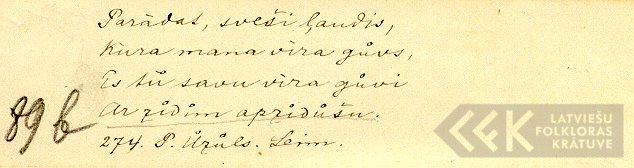 Parādat, sveši ļaudis,
Kura mana vīra gůvs,
Es tů savu vīra gůvi
Ar zīdim apzīdůšu.
89 b
274. P. Ůzůls. Leim.
LATVIEŠU
FOLKLORAS
KRĀTUVE